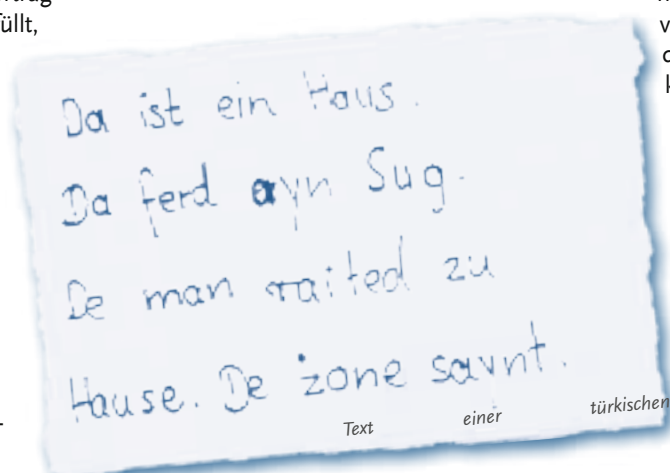 füllt,
Da ist ein Haus.
Da ferd ayn Sug.
De man raited zu
Hause. De żone saynt.
Text einer türkischen